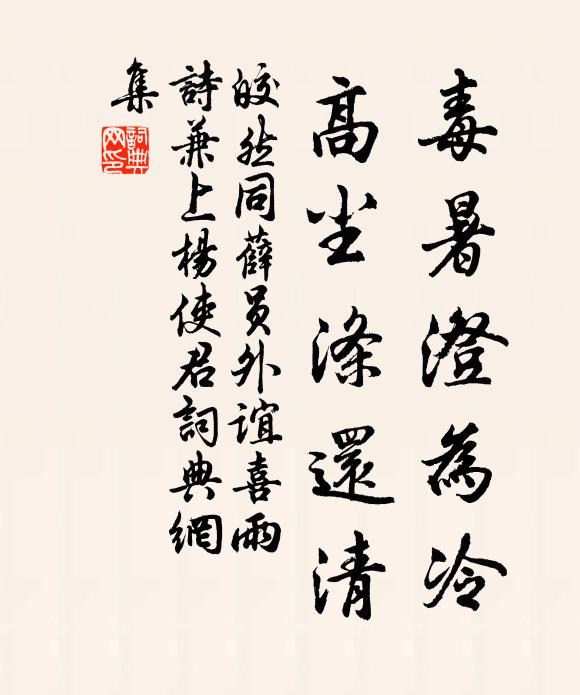 毒暑澄為冷
高尘滌還清
皎然同薛员外誼喜雨
詩兼上楊使君詞典網
集
詞典
网印